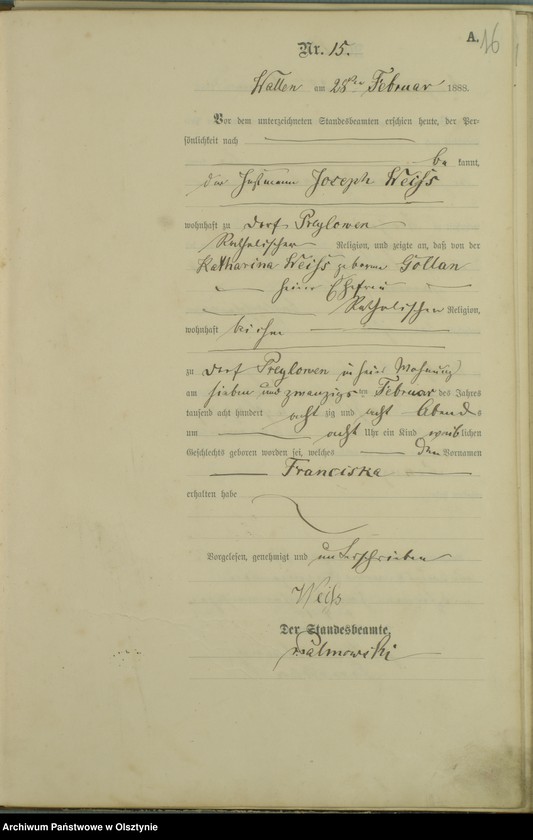 A. 16
Nr. 15.
am 28ten Februar 1888.
Vor dem unterzeichneten Standesbeamten erschien heute, der Per-
sönlichkeit nach
be kannt,
der Joseph Weiss
wohnhaft zu Dorf Preylowen
Katholischer Religion, und zeigte an, daß von der
Katharina Weiss geborene Gollan
seiner Ehefrau
Katholischer Religion,
wohnhaft bei ihm
zu Dorf Preylowen in seiner Wohnung
am sieben und zwanzigsten Februar des Jahres
tausend acht hundert acht zig und acht Abends
um acht Uhr ein Kind weiblichen
Geschlechts geboren worden sei, welches den Vornamen
Franciska
erhalten habe
Vorgelesen, genehmigt und unterschrieben
Weiss
Der Standesbeamte.
Palmowski
Archiwum Państwowe w Olsztynie